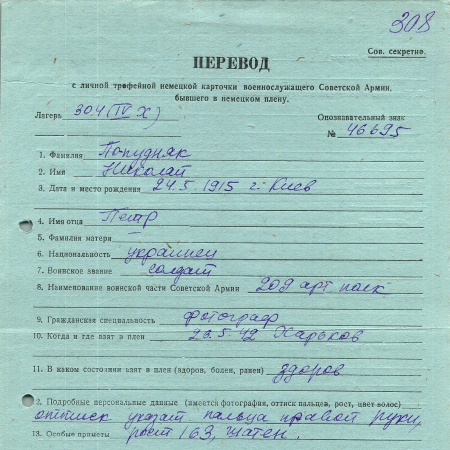 308
Сов. секретно.
ПЕРЕВОД
с личной трофейной немецкой карточки военнослужащего Советской Армии,
бывшего в немецком плену.
Лагерь 304 (IV X)
Опознавательный знак
№ 46695
1. Фамилия Попудняк
2. Имя Николай
3. Дата и место рождения 24.5.1915 г. Киев
4. Имя отца Петр
5. Фамилия матери
6. Национальность украинец
7. Воинское звание солдат
8. Наименование воинской части Советской Армии 209 арт полк
9. Гражданская специальность фотограф
10. Когда и где взят в плен 23.5.42 Харьков
11. В каком состоянии взят в плен (здоров, болен, ранен) здоров
2. Подробные персональные данные (имеется фотография, оттиск пальцев, рост, цвет волос)
оттиск указат пальца правой руки,
13. Особые приметы рост 163, шатен.